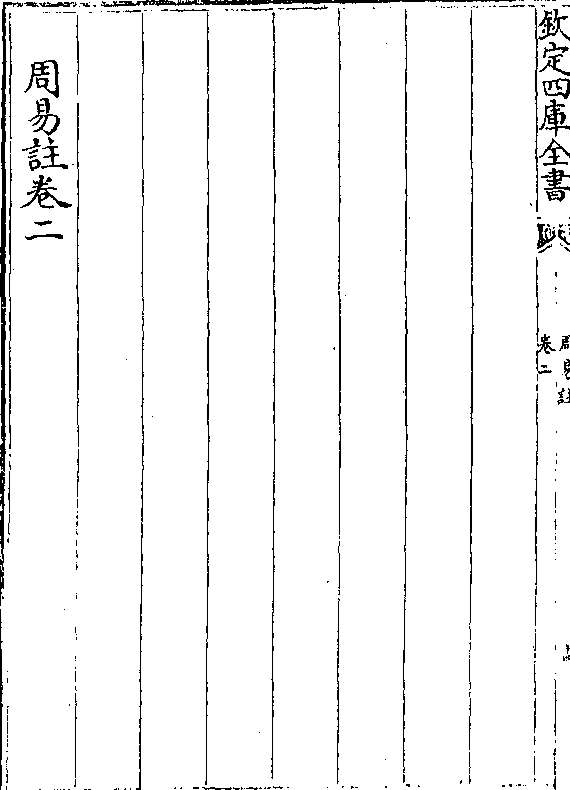 欽定四庫全書
周易註
卷二
周易註卷二